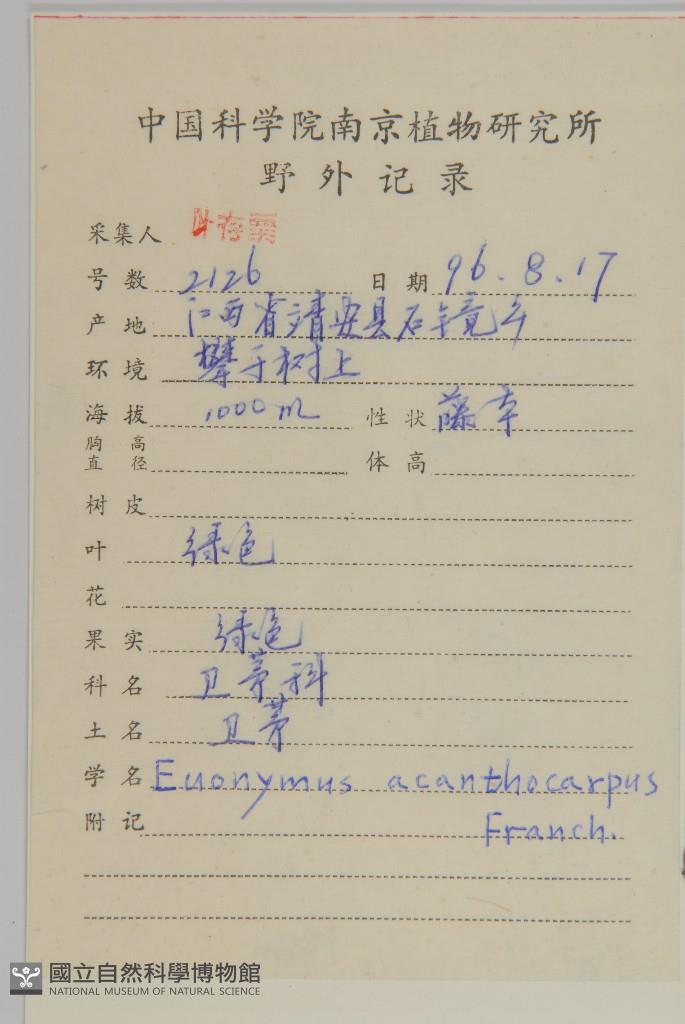 中国科学院南京植物研究所
野外记录
采集人 叶存粟
号数 2126 日期 96.8.17
产地 江西省靖安县石镜乡
环境 攀于树上
海拔 1000m 性状 藤本
胸高直径 体高
树皮
叶 绿色
花
果实 绿色
科名 卫茅科
土名 卫茅
学名 Euonymus acanthocarpus
附记 Franch.
國立自然科學博物館
NATIONAL MUSEUM OF NATURAL SCIENCE